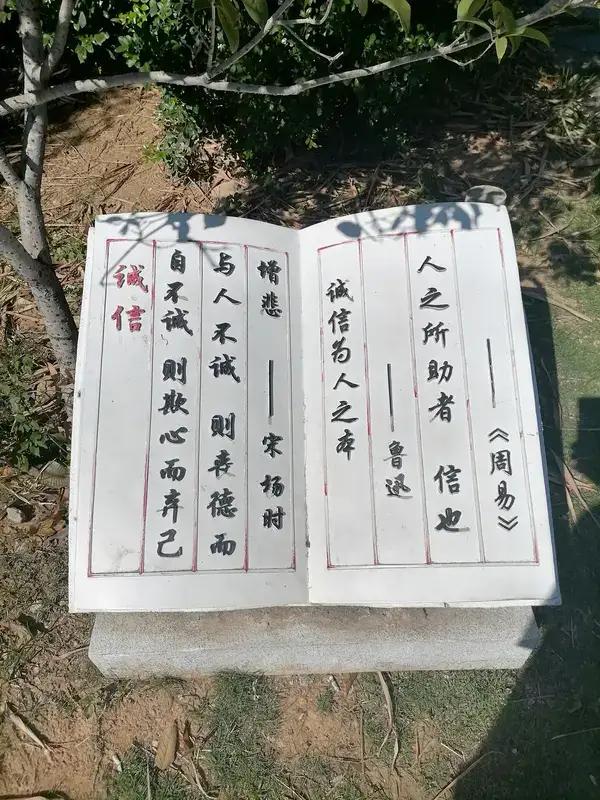 诚信
自不诚 则欺心而弃己
与人不诚 则丧德而
增悲 ——宋 杨时
诚信为人之本
——鲁迅
人之所助者 信也
——《周易》